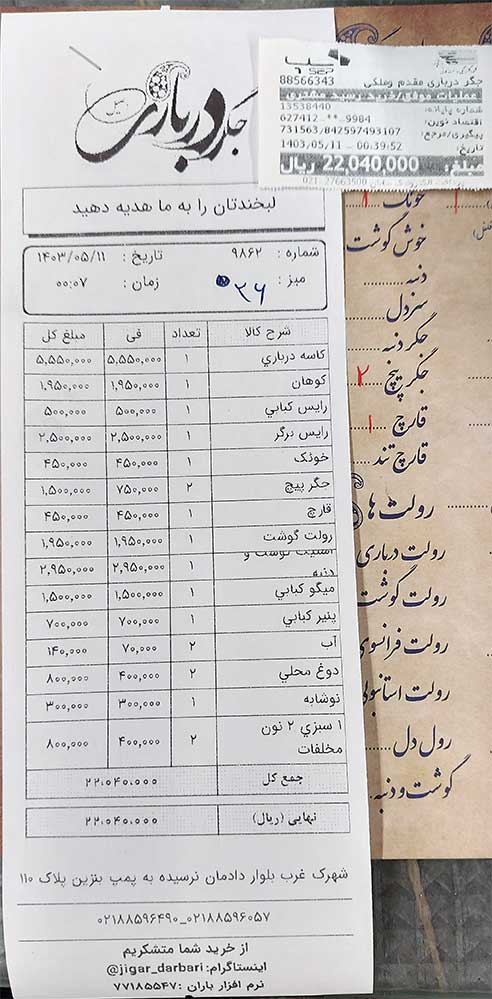 جگر درباری
لبخندتان را به ما هدیه دهید
شماره : ۹۸۶۲ تاریخ : ۱۴۰۳/۰۵/۱۱
میز : ۲۶ زمان : ۰۰:۰۷
شرح کالا تعداد فی مبلغ کل
کاسه درباري ۱ ۵,۵۵۰,۰۰۰ ۵,۵۵۰,۰۰۰
کوهان ۱ ۱,۹۵۰,۰۰۰ ۱,۹۵۰,۰۰۰
رایس کبابي ۱ ۵۰۰,۰۰۰ ۵۰۰,۰۰۰
رایس برگر ۱ ۲,۵۰۰,۰۰۰ ۲,۵۰۰,۰۰۰
خونک ۱ ۴۵۰,۰۰۰ ۴۵۰,۰۰۰
جگر پیچ ۲ ۷۵۰,۰۰۰ ۱,۵۰۰,۰۰۰
قارچ ۱ ۴۵۰,۰۰۰ ۴۵۰,۰۰۰
رولت گوشت ۱ ۱,۹۵۰,۰۰۰ ۱,۹۵۰,۰۰۰
گوشت و
دنبه ۱ ۲,۹۵۰,۰۰۰ ۲,۹۵۰,۰۰۰
میگو کبابي ۱ ۱,۵۰۰,۰۰۰ ۱,۵۰۰,۰۰۰
پنیر کبابي ۱ ۷۰۰,۰۰۰ ۷۰۰,۰۰۰
آب ۲ ۷۰,۰۰۰ ۱۴۰,۰۰۰
دوغ محلي ۲ ۴۰۰,۰۰۰ ۸۰۰,۰۰۰
نوشابه ۱ ۳۰۰,۰۰۰ ۳۰۰,۰۰۰
۱ سبزي ۲ نون
مخلفات ۲ ۴۰۰,۰۰۰ ۸۰۰,۰۰۰
جمع کل ۲۲,۰۴۰,۰۰۰
نهایی (ریال) ۲۲,۰۴۰,۰۰۰
شهرک غرب بلوار دادمان نرسیده به پمپ بنزین پلاک ۱۱۰
۰۲۱۸۸۵۹۶۴۹۰_۰۲۱۸۸۵۹۶۰۵۷
از خرید شما متشکریم
اینستاگرام: @jigar_darbari
نرم افزار باران : ۷۷۱۸۵۵۴۷
SEP
جگر درباری مقدم وملکی
88566343
عملیات موفق/خرید رسید مشتری
شماره پایانه: 13538440
اقتصاد نوین: 627412--**-9984
پیگیری/مرجع: 731563/842597493107
تاریخ: 1403/05/11 -- 00:39:52
مبلغ: 22,040,000 ریال
021-27663500
خونک ۱
خوش گوشت
دنبه
سردل
جگر دنبه
جگر پیچ ۲
قارچ ۱
قارچ تند
رولت ها
رولت درباری
رولت گوشت
رولت فرانسوی
رولت استانبولی
رول دل
گوشت و دنبه